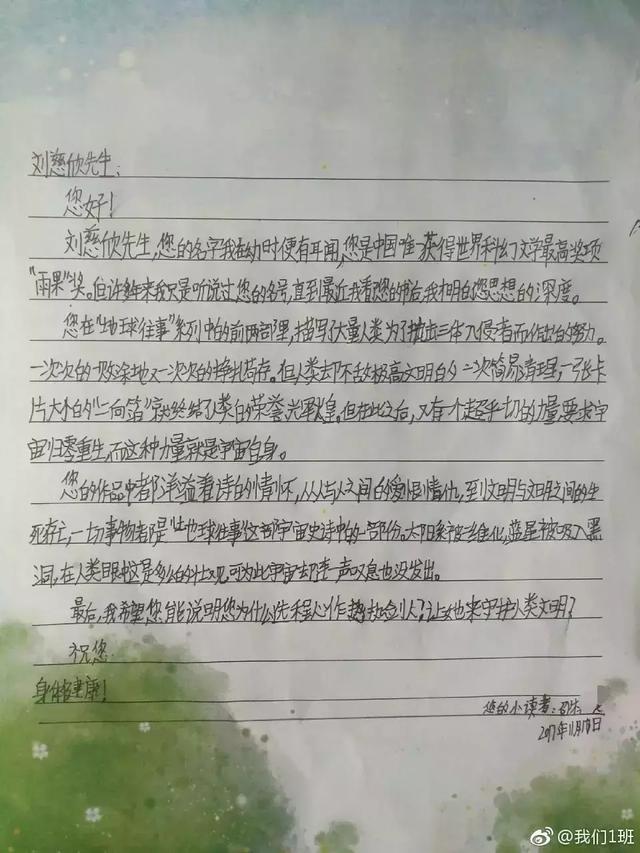 刘慈欣先生:
您好!
刘慈欣先生,您的名字我在幼时便有耳闻,您是中国唯一获得世界科幻文学最高奖项
"雨果"奖。但许多年来我只是听说过您的名号,直到最近我看您的书后,我才明白您思想的深度。
您在"地球往事"系列中的前两部里,描写了大量人类为了抵抗三体入侵者而作出的努力。
一次次的一败涂地又一次次的挣扎苟存。但人类却不敌极高文明的一次简易清理,一张卡
片大小的"二向箔"就终结了人类的荣誉光辉。但在此之后,又有一个超乎一切的力量要求宇
宙归零重生,而这种力量就是宇宙自身。
您的作品中都洋溢着诗的情怀,从人与人之间的爱恨情仇,到文明与文明之间的生
死存亡,一切事物都是"地球往事"这部宇宙史诗中的一部份。太阳系被二维化,蓝星被吸入黑
洞,在人类眼中这是多么的壮观,可为此宇宙却连一声叹息也没发出。
最后,我希望您能说明您为什么选程心作 执剑人?让她来守护人类文明?
祝您
身体健康!
您的小读者:
2017年11月 日
@我们1班